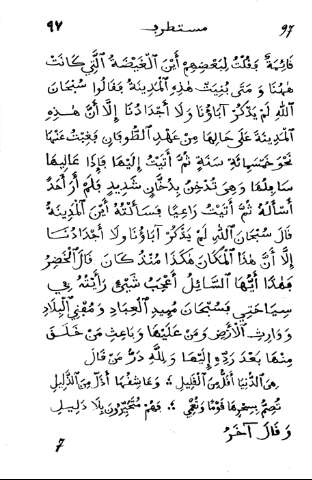 97 مستطرف ٩٧
قائمة فقلت لبعضهم أين الغيضة التي كانت
ههنا و متى بنيت هذه المدينة فقالوا سبحان
الله لم يذكر آباؤنا ولا أجدادنا إلا أن هذه
المدينة على حالها من عهد الطوفان فغبت عنها
نحو خمسمائة سنة ثم أتيت إليها فإذا عاليها
سافلها وهي تدخن بدخان شديد فلم أر أحد
أسأله ثم أتيت راعيا فسألته أين المدينة
قال سبحان الله لم يذكر آباؤنا ولا أجدادنا
إلا أن هذا المكان هكذا منذ كان قال الخضر
فهذا أيها السائل أعجب شيئ رأيته في
سياحتي فسبحان مبيد العباد و مفني البلاد
و وارث الأرض ومن عليها و باعث من خلق
منها بعد رده إليها ولله در من قال
هي الدنيا أقل من القليل ؛ وعاشقها أذل من الذليل
تصم بسحرها قوما و تعمي ؛ فهم متحيرون بلا دليل
و قال آخر